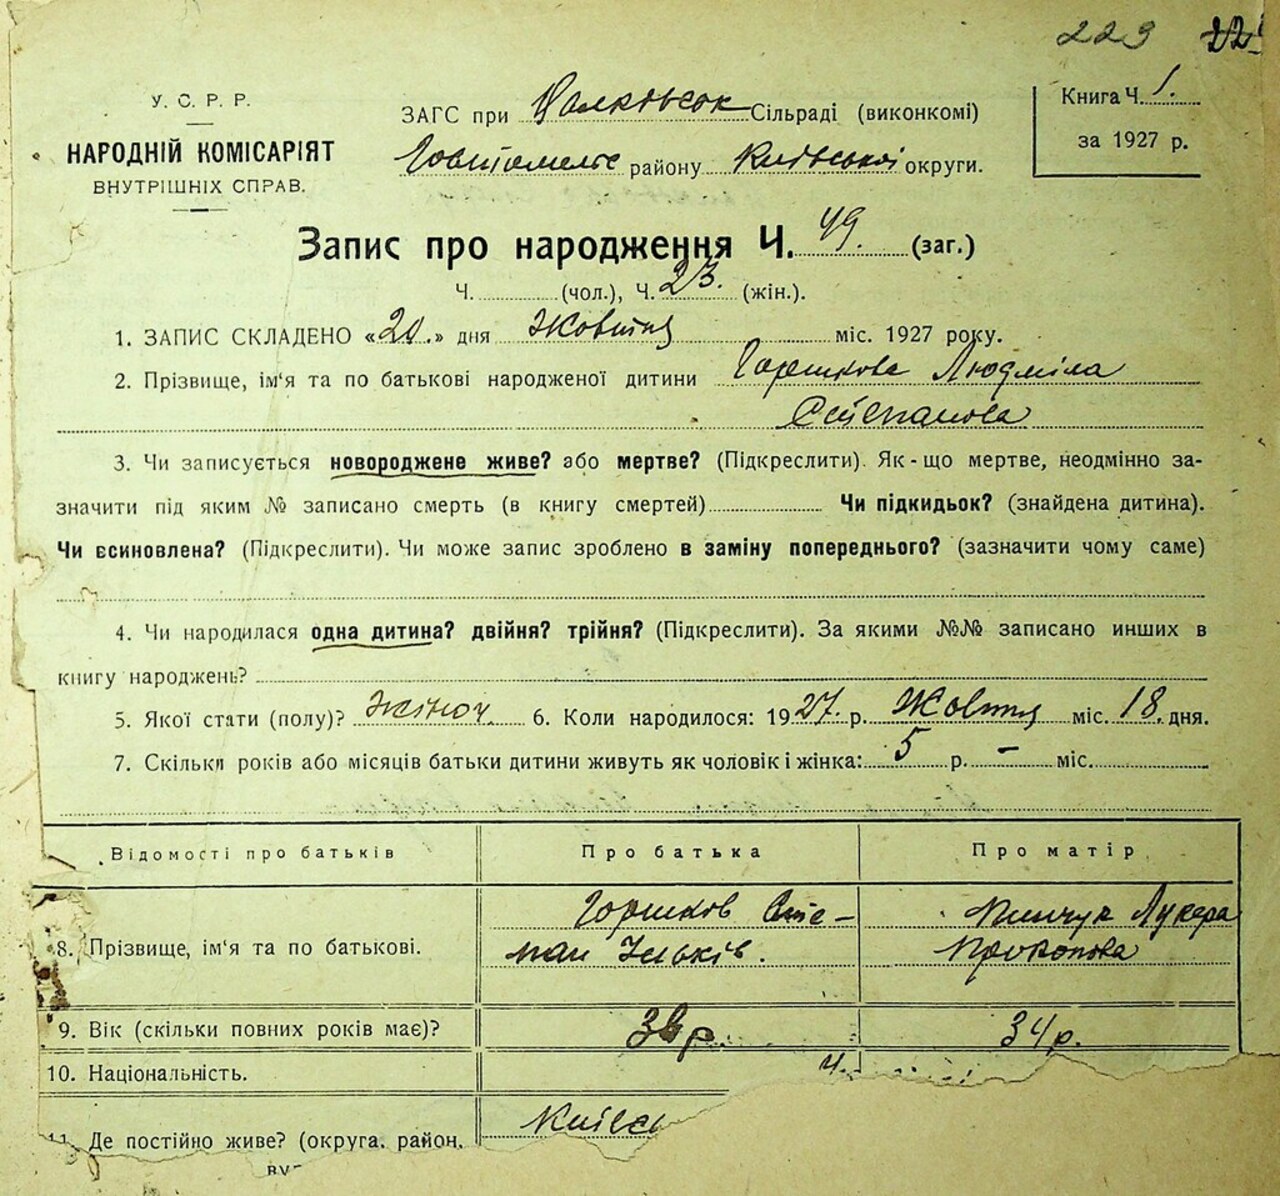 229 22
У. С. Р. Р.
НАРОДНІЙ КОМІСАРІЯТ
ВНУТРІШНІХ СПРАВ.
ЗАГС при Сільраді (виконкомі)
району Київської округи.
Книга Ч. 1.
за 1927 р.
Запис про народження Ч. 49. (заг.)
Ч. (чол.), Ч. 23. (жін.).
1. ЗАПИС СКЛАДЕНО «20.» дня Жовтня міс. 1927 року.
2. Прізвище, ім'я та по батькові народженої дитини Горшкова Людміла
Степанова
3. Чи записується новороджене живе? або мертве? (Підкреслити). Як-що мертве, неодмінно за-
значити під яким № записано смерть (в книгу смертей) Чи підкидьок? (знайдена дитина).
Чи єсиновлена? (Підкреслити). Чи може запис зроблено в заміну попереднього? (зазначити чому саме)
4. Чи народилася одна дитина? двійня? трійня? (Підкреслити). За якими №№ записано инших в
книгу народжень?
5. Якої стати (полу)? жіноч. 6. Коли народилося: 1927. р. Жовтня міс. 18. дня.
7. Скільки років або місяців батьки дитини живуть як чоловік і жінка: 5 р. – міс.
Відомості про батьків Про батька Про матір
8. Прізвище, ім'я та по батькові. Горшков Сте-
пан Ільків. Лукера
Прокопова
9. Вік (скільки повних років має)? р. 34 р.
10. Національність.
11. Де постійно живе? (округа, район,